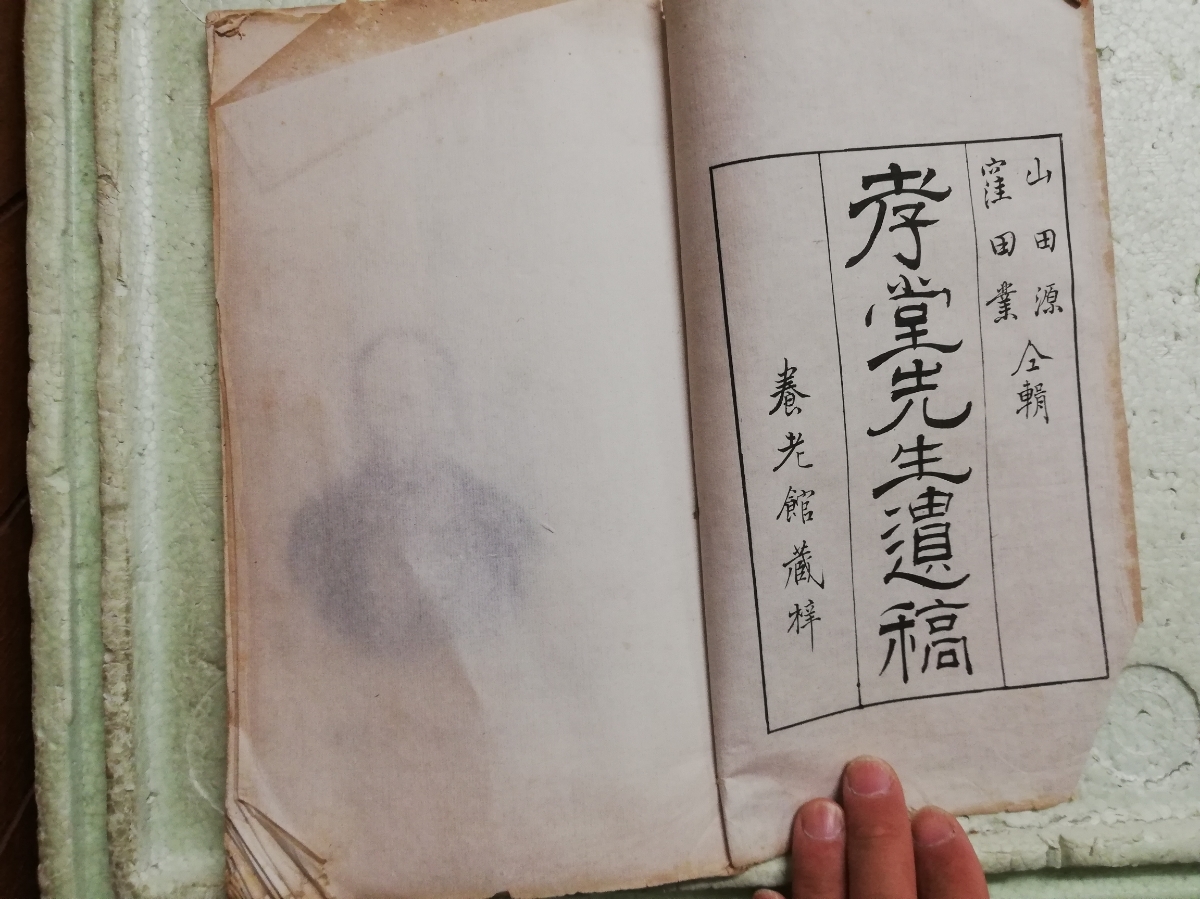 山田源
窪田業
仝輯
孝堂先生遺稿
養老館藏梓